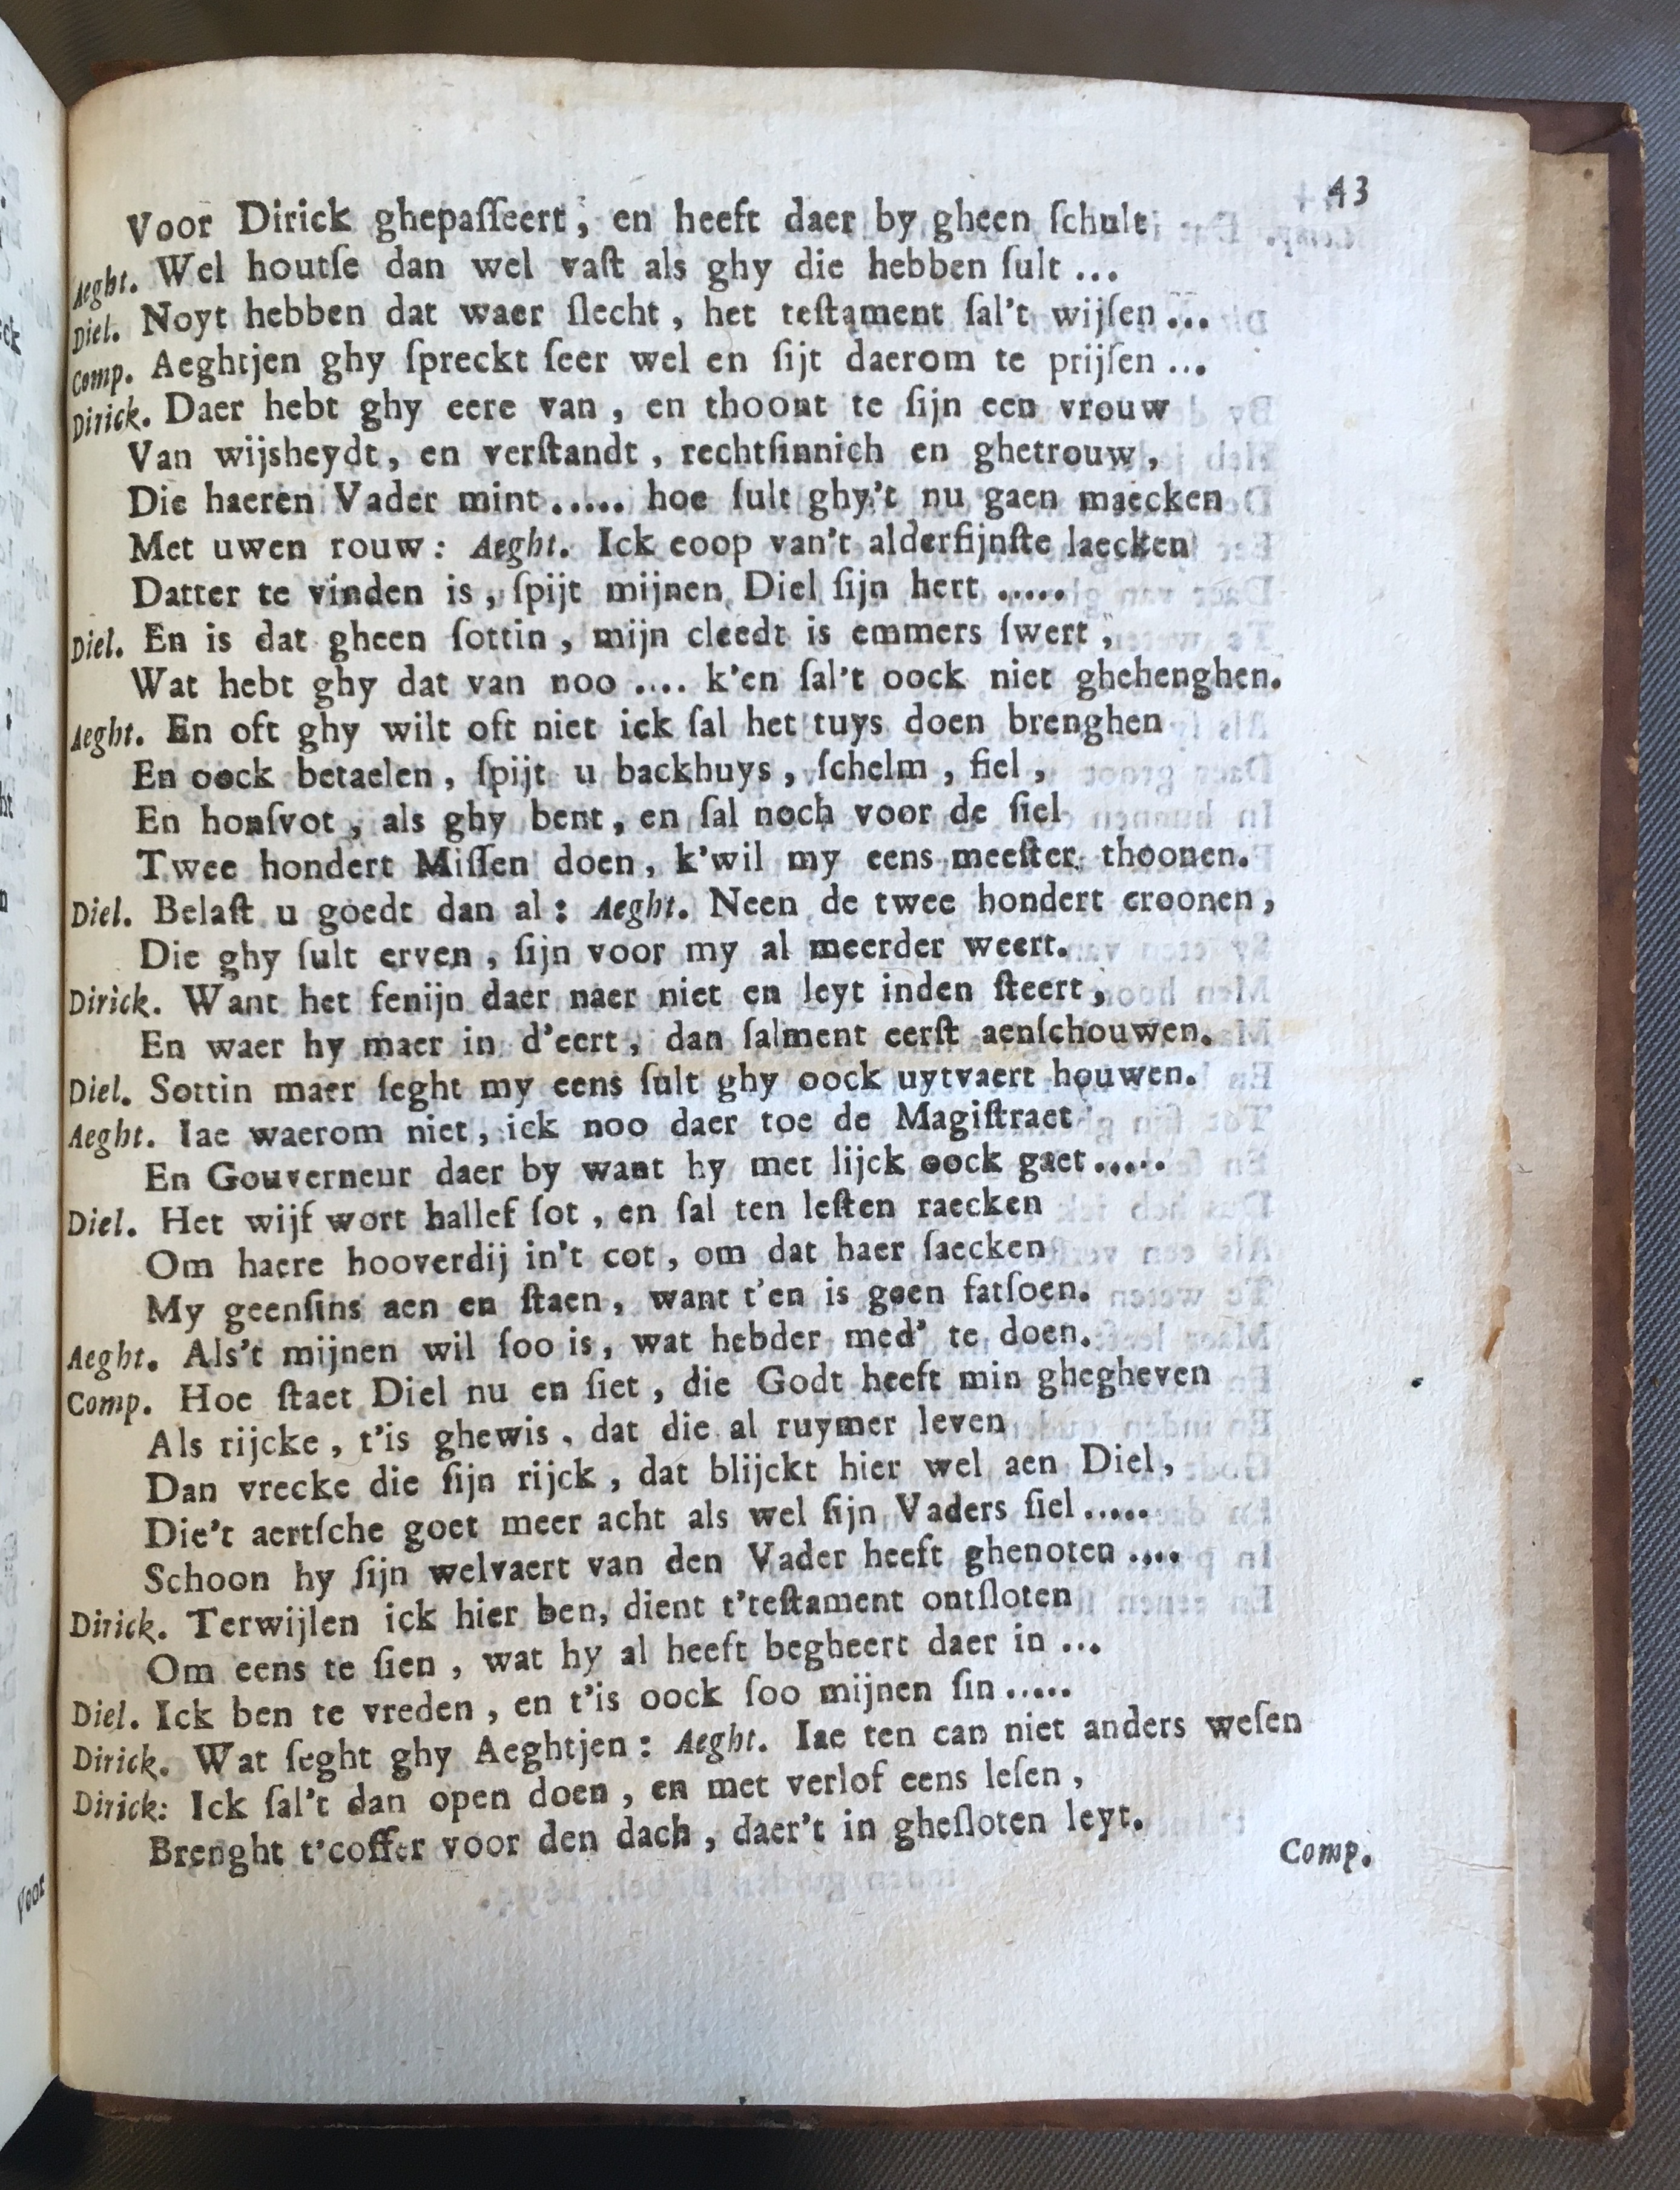 43
Voor Dirick ghepaſſeert, en heeft daer by gheen ſchult
Aeght. Wel houtſe dan wel vaſt als ghy die hebben ſult ...
Diel. Noyt hebben dat waer ſlecht, het teſtament ſal't wijſen ...
Comp. Aeghtjen ghy ſpreckt ſeer wel en ſijt daerom te prijſen ...
Dirick. Daer hebt ghy eere van, en thoont te ſijn een vrouw
Van wijsheydt, en verſtandt, rechtſinnich en ghetrouw,
Die haeren Vader mint ..... hoe ſult ghy't nu gaen maecken
Met uwen rouw: Aeght. Ick coop van't alderfijnſte laecken
Datter te vinden is, ſpijt mijnen Diel ſijn hert .....
Diel. En is dat gheen ſottin, mijn cleedt is emmers ſwert,
Wat hebt ghy dat van noo .... k'en ſal't oock niet ghehenghen.
Aeght. En oft ghy wilt oft niet ick ſal het tuys doen brenghen
En oock betaelen, ſpijt u backhuys, ſchelm, fiel,
En honſvot, als ghy bent, en ſal noch voor de ſiel
Twee hondert Miſſen doen, k'wil my eens meeſter thoonen.
Diel. Belaſt u goedt dan al: Aeght. Neen de twee hondert croonen,
Die ghy ſult erven, ſijn voor my al meerder weert.
Dirick. Want het fenijn daer naer niet en leyt inden ſteert,
En waer hy maer in d'eert, dan ſalment eerſt aenſchouwen.
Diel. Sottin maer ſeght my eens ſult ghy oock uytvaert houwen.
Aeght. Iae waerom niet, ick noo daer toe de Magiſtraet
En Gouverneur daer by want hy met lijck oock gaet .....
Diel. Het wijf wort hallef ſot, en ſal ten leſten raecken
Om haere hooverdij in't cot, om dat haer ſaecken
My geenſins aen en ſtaen, want t'en is geen fatſoen.
Aeght. Als't mijnen wil ſoo is, wat hebder med' te doen.
Comp. Hoe ſtaet Diel nu en ſiet, die Godt heeft min ghegheven
Als rijcke, t'is ghewis, dat die al ruymer leven
Dan vrecke die ſijn rijck, dat blijckt hier wel aen Diel,
Die't aertſche goet meer acht als wel ſijn Vaders ſiel .....
Schoon hy ſijn welvaert van den Vader heeft ghenoten ....
Dirick. Terwijlen ick hier ben, dient t'teſtament ontſloten
Om eens te ſien, wat hy al heeft begheert daer in ...
Diel. Ick ben te vreden, en t'is oock ſoo mijnen ſin .....
Dirick. Wat ſeght ghy Aeghtjen: Aeght. Iae ten can niet anders weſen
Dirick: Ick ſal't dan open doen, en met verlof eens leſen,
Brenght t'coffer voor den dach, daer't in gheſloten leyt.
Comp.
Voor